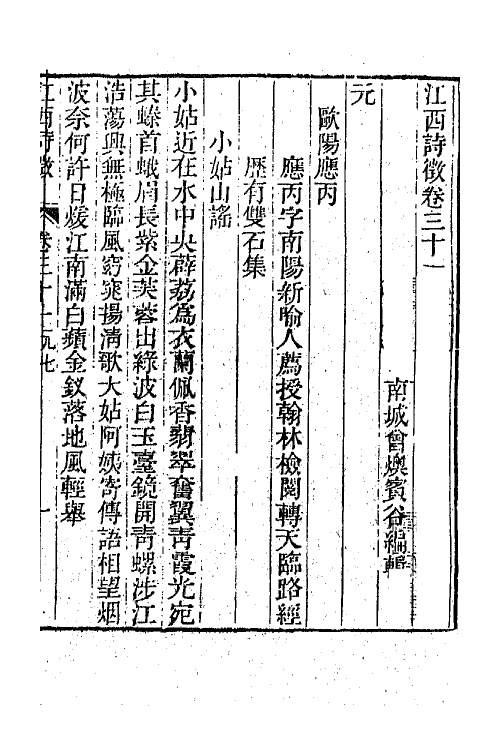 江西詩徵卷三十一
南城曾燠賓谷編輯
元
歐陽應丙
應丙字南陽新喻人薦授翰林檢閱轉天臨路經
歷有雙石集
小姑山謠
小姑近在水中央薜荔爲衣蘭佩香翡翠奮翼青霞光宛
其螓首蛾眉長紫金芙蓉出綠波白玉臺鏡開青螺涉江
浩蕩興無極臨風窈窕揚清歌大姑阿姨寄傳語相望烟
波奈何許日煖江南滿白蘋金釵落地風輕舉
江西詩徵 卷三十一 九七 一